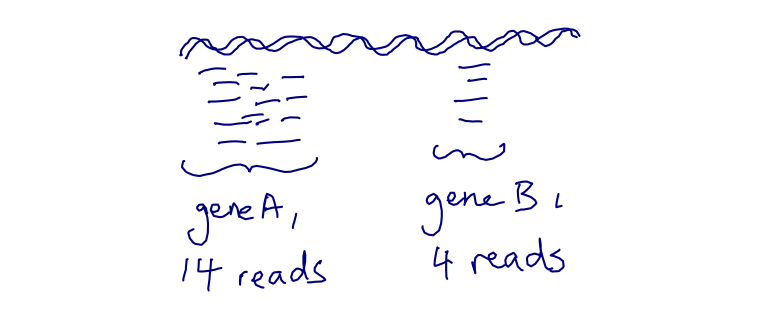 gene A,
14 reads
gene B,
4 reads